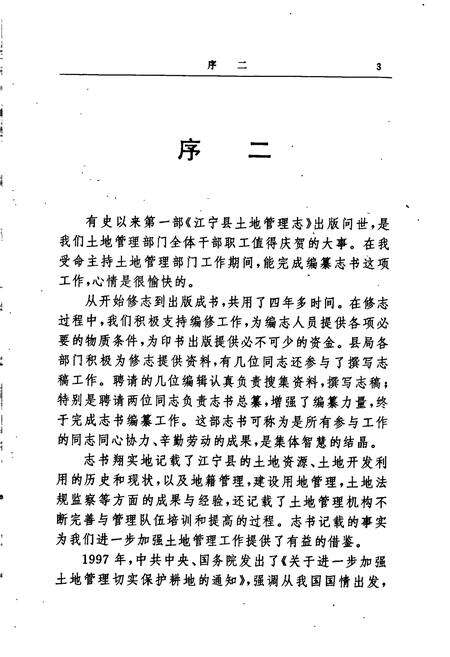 序 二 3
序 二
有史以来第一部《江宁县土地管理志》出版问世，是
我们土地管理部门全体干部职工值得庆贺的大事。在我
受命主持土地管理部门工作期间，能完成编纂志书这项
工作，心情是很愉快的。
从开始修志到出版成书，共用了四年多时间。在修志
过程中，我们积极支持编修工作，为编志人员提供各项必
要的物质条件，为印书出版提供必不可少的资金。县局各
部门积极为修志提供资料，有几位同志还参与了撰写志
稿工作。聘请的几位编辑认真负责搜集资料，撰写志稿；
特别是聘请两位同志负责志书总纂，增强了编纂力量，终
于完成志书编纂工作。这部志书可称为是所有参与工作
的同志同心协力、辛勤劳动的成果，是集体智慧的结晶。
志书翔实地记载了江宁县的土地资源、土地开发利
用的历史和现状，以及地籍管理，建设用地管理，土地法
规监察等方面的成果与经验，还记载了土地管理机构不
断完善与管理队伍培训和提高的过程。志书记载的事实
为我们进一步加强土地管理工作提供了有益的借鉴。
1997年，中共中央、国务院发出了《关于进一步加强
土地管理切实保护耕地的通知》，强调从我国国情出发，